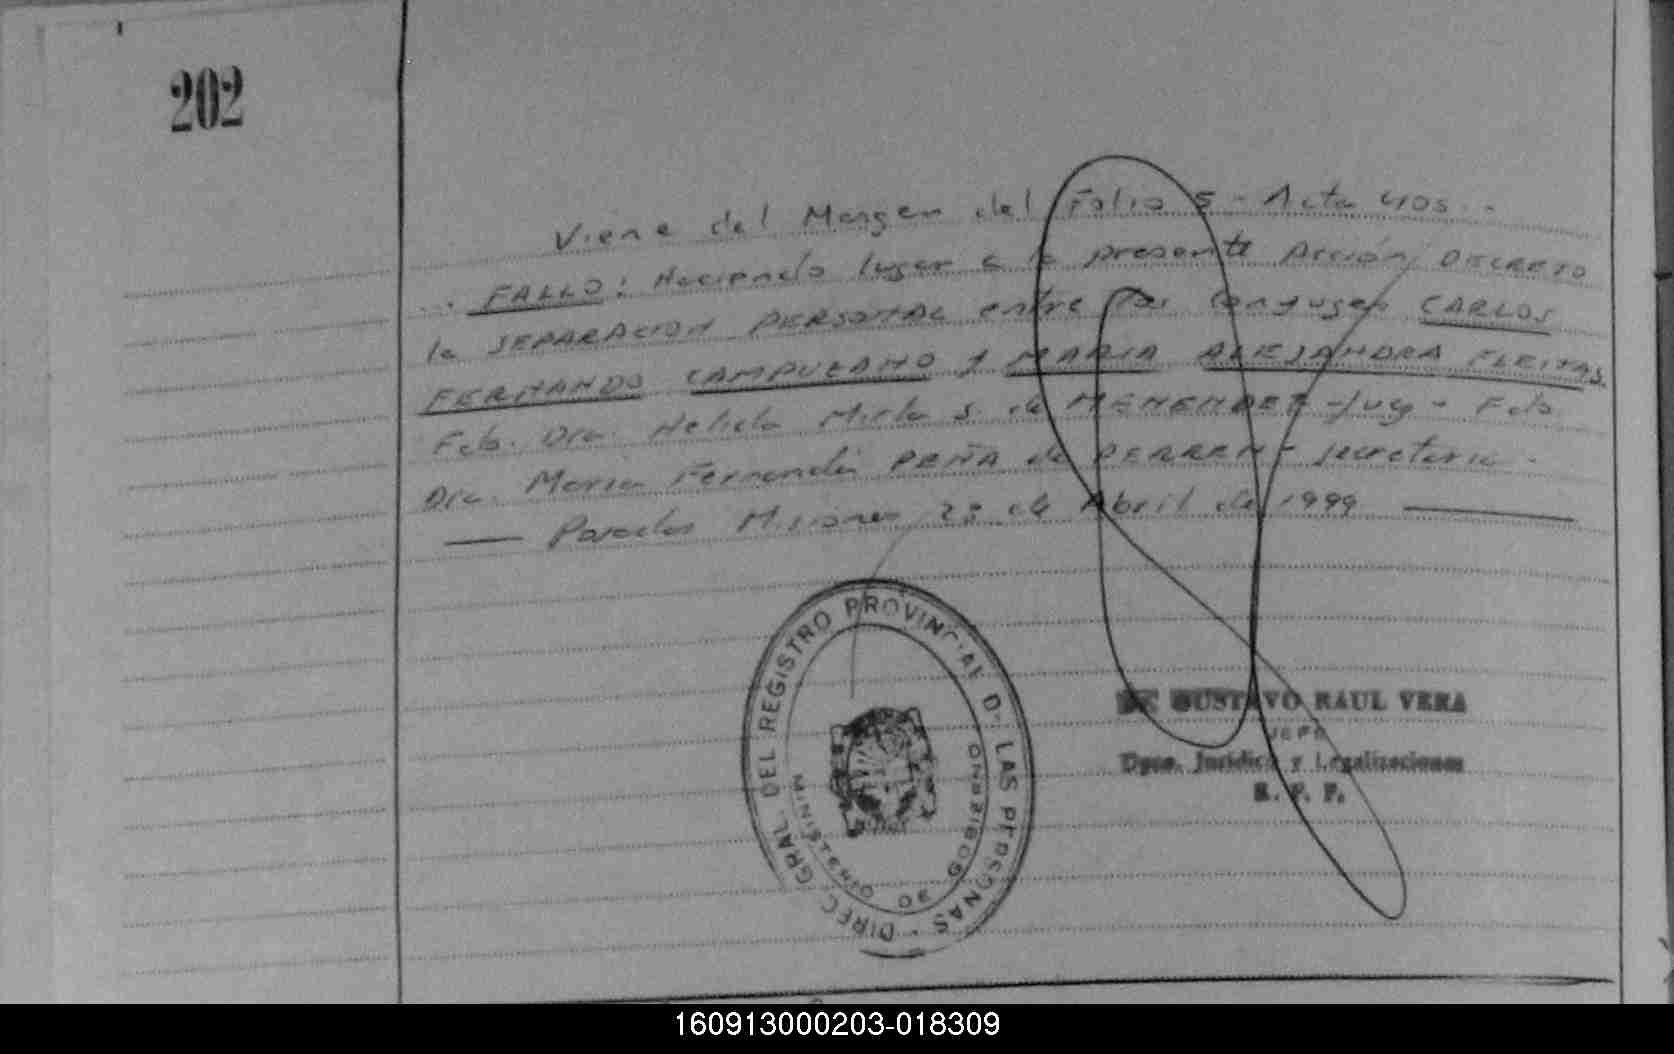 202
Viene del Margen del Folio 5 - Acta 405 -
... FALLO: Haciendo lugar a la presente Acción, DECRETO
la SEPARACION PERSONAL entre los conyuges CARLOS
FERNANDO CAMPUZANO y MARIA ALEJANDRA FLEITAS.
Fdo. Dra. Mirta S. de MENENDEZ - Juez - Fdo.
Dra. Maria Fernanda PEÑA de PERREN - secretaria -
Posadas Misiones 28 de Abril de 1999
DIREC. GRAL. DEL REGISTRO PROVINCIAL DE LAS PERSONAS -
MINISTERIO DE GOBIERNO
GUSTAVO RAUL VERA
JEFE
Dpto. Jurídico y Legalizaciones
R. P. P.
160913000203-018309